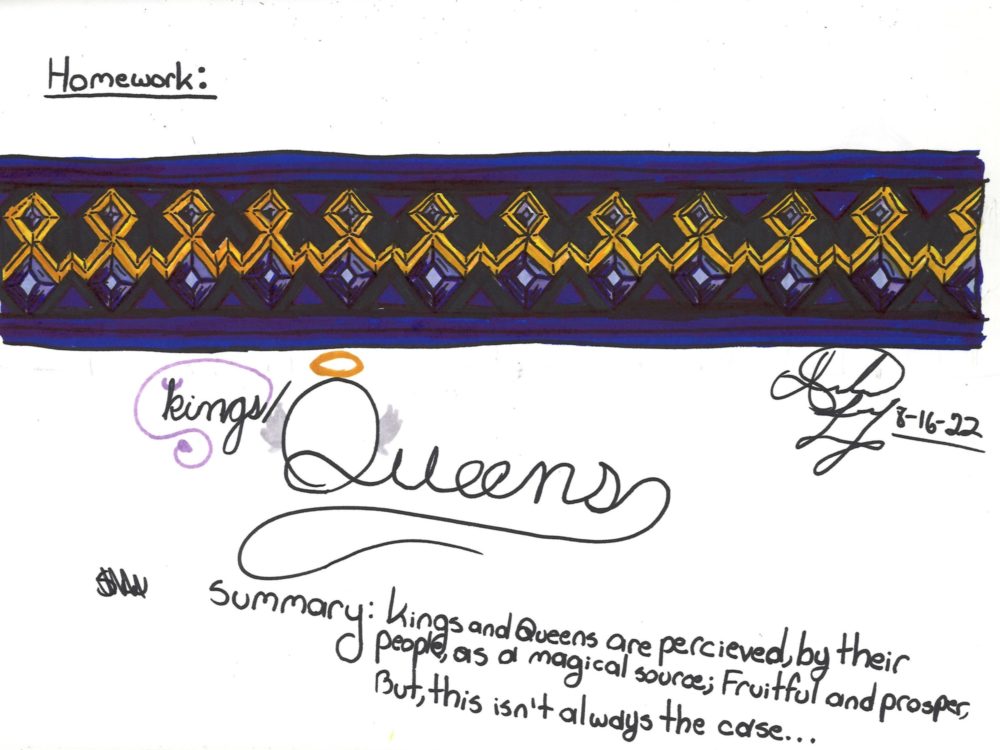 Homework:
kings/Queens
8-16-22
Summary: Kings and Queens are percieved, by their
people, as a magical source; Fruitful and prosper,
But, this isn't always the case...